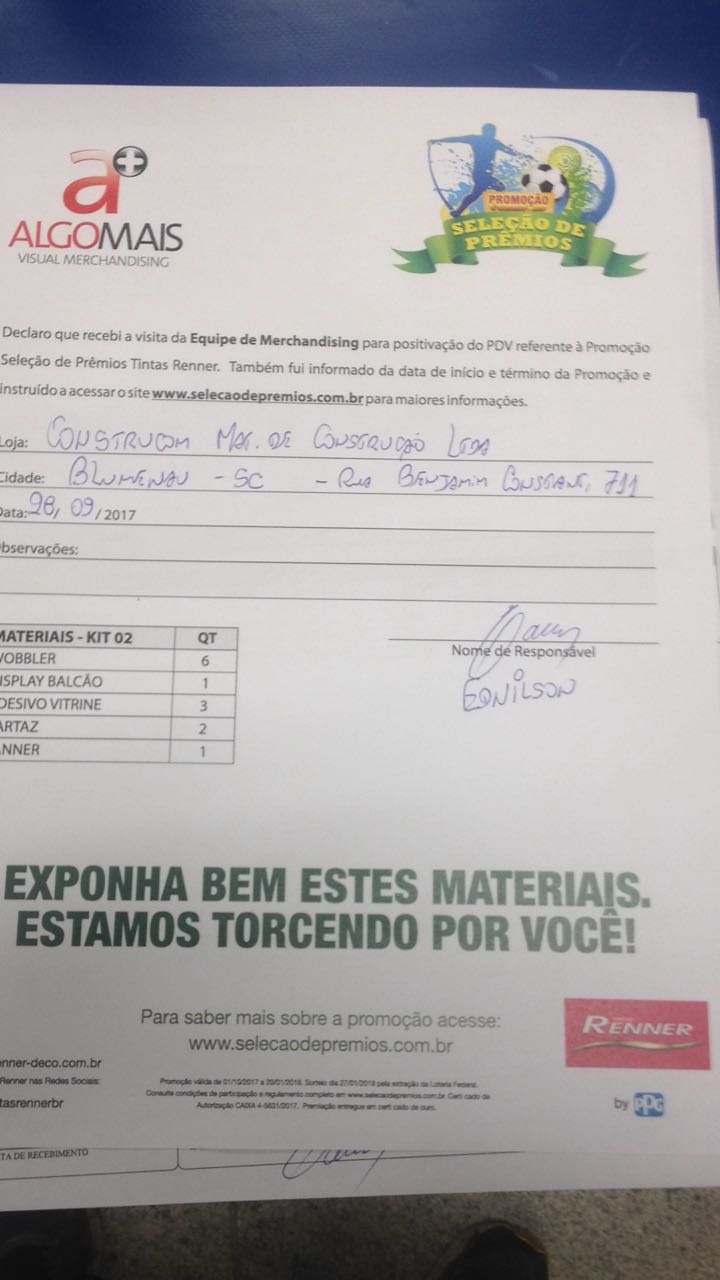 a+
ALGOMAIS
VISUAL MERCHANDISING
PROMOÇÃO
SELEÇÃO DE
PRÊMIOS
Declaro que recebi a visita da Equipe de Merchandising para positivação do PDV referente à Promoção
Seleção de Prêmios Tintas Renner. Também fui informado da data de início e término da Promoção e
instruído a acessar o site www.selecaodepremios.com.br para maiores informações.
Loja: CONSTRUCOM MAT. DE CONSTRUÇÃO LTDA
Cidade: BLUMENAU - SC - RUA BENJAMIN CONSTANT, 711
Data: 28/09/2017
Observações:
MATERIAIS - KIT 02 QT
WOBBLER 6
ISPLAY BALCÃO 1
DESIVO VITRINE 3
ARTAZ 2
ANNER 1
Nome de Responsável
EDNILSON
EXPONHA BEM ESTES MATERIAIS.
ESTAMOS TORCENDO POR VOCÊ!
Para saber mais sobre a promoção acesse:
www.selecaodepremios.com.br
nner-deco.com.br
Renner nas Redes Sociais:
tasrennerbr
Promoção válida de 01/10/2017 a 20/01/2018. Sorteio dia 27/01/2018 pela extração da Loteria Federal.
Consulte condições de participação e regulamento completo em www.selecaodepremios.com.br. Certi cado de
Autorização CAIXA 4-5631/2017. Premiação entregue em certi cado de ouro.
RENNER
by PPG
TA DE RECEBIMENTO